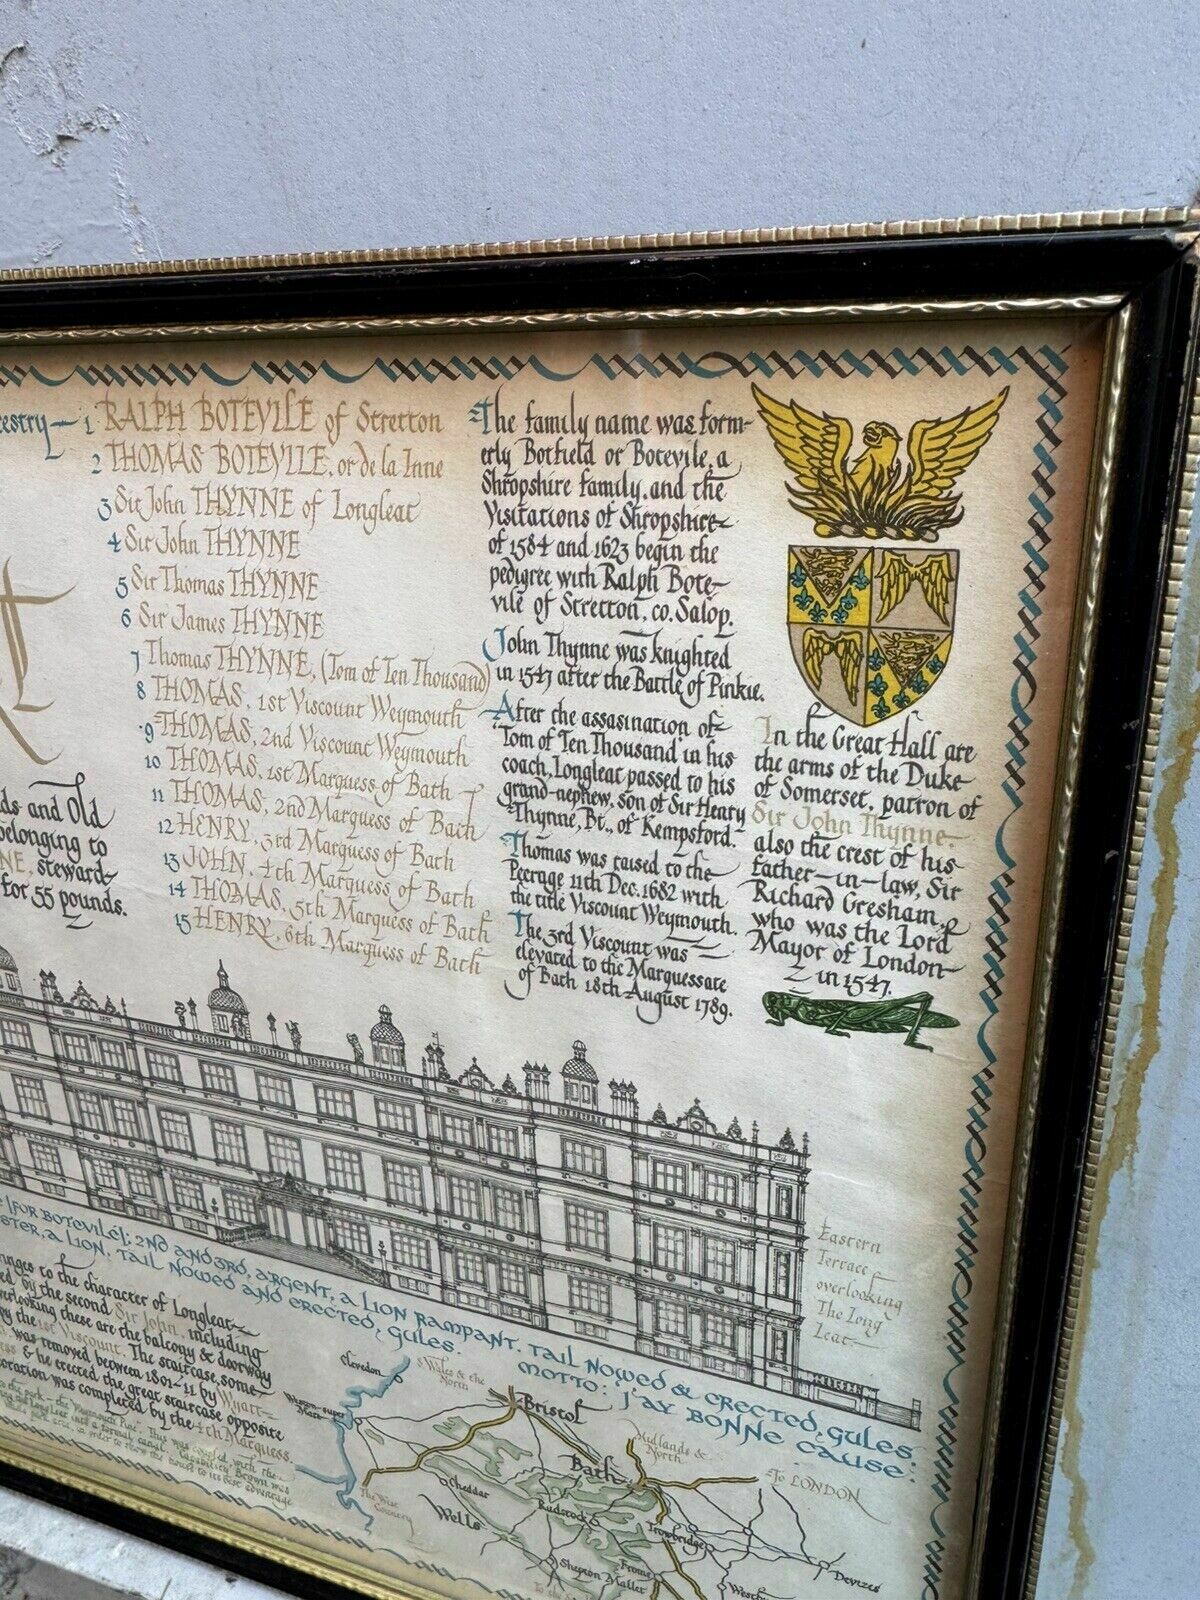 cestry— 1 RALPH BOTEVILE of Stretton
2 THOMAS BOTEVILE, or de la Inne
3 Sir John THYNNE of Longleat
4 Sir John THYNNE
5 Sir Thomas THYNNE
6 Sir James THYNNE
7 Thomas THYNNE, (Tom of Ten Thousand)
8 THOMAS, 1st Viscount Weymouth
9 THOMAS, 2nd Viscount Weymouth
10 THOMAS, 1st Marquess of Bath
11 THOMAS, 2nd Marquess of Bath
12 HENRY, 3rd Marquess of Bath
13 JOHN, 4th Marquess of Bath
14 THOMAS, 5th Marquess of Bath
15 HENRY, 6th Marquess of Bath
The family name was form-
erly Botfield or Botevile, a
Shropshire family, and the
Visitations of Shropshire
of 1584 and 1623 begin the
pedigree with Ralph Bote-
vile of Stretton, co. Salop.
John Thynne was knighted
in 1547 after the Battle of Pinkie.
After the assasination of
Tom of Ten Thousand in his
coach, Longleat passed to his
grand-nephew, son of Sir Henry
Thynne, Bt., of Kempsford.
Thomas was raised to the
Peerage 11th Dec. 1682 with
the title Viscount Weymouth.
The 3rd Viscount was
elevated to the Marquessate
of Bath 18th August 1789.
In the Great Hall are
the arms of the Duke
of Somerset, patron of
Sir John Thynne.
also the crest of his
father-in-law, Sir
Richard Gresham,
who was the Lord
Mayor of London
in 1547.
ds and Old
belonging to
NE, steward
for 55 pounds.
Eastern
Terrace
overlooking
The Long
Leat
(FOR BOTEVILE); 2ND AND 3RD, ARGENT, A LION RAMPANT, TAIL NOWED & ERECTED, GULES.
ETER, A LION, TAIL NOWED AND ERECTED, GULES. MOTTO: J'AY BONNE CAUSE:
nges to the character of Longleat
ed by the second Sir John, including
verlooking these are the balcony & doorway
by the 1st Viscount. The staircase, some
was removed between 1801-11 by Wyatt
ss & he erected the great staircase opposite
oration was completed by the 4th Marquess.
Clevedon
S Wales & the
North
Weston-super
Mare
Bristol
Midlands &
North
To LONDON
Bath
The West
Country
Cheddar
Wells
Radstock
Trowbridge
Shepton Mallet
Frome
Devizes
Westb